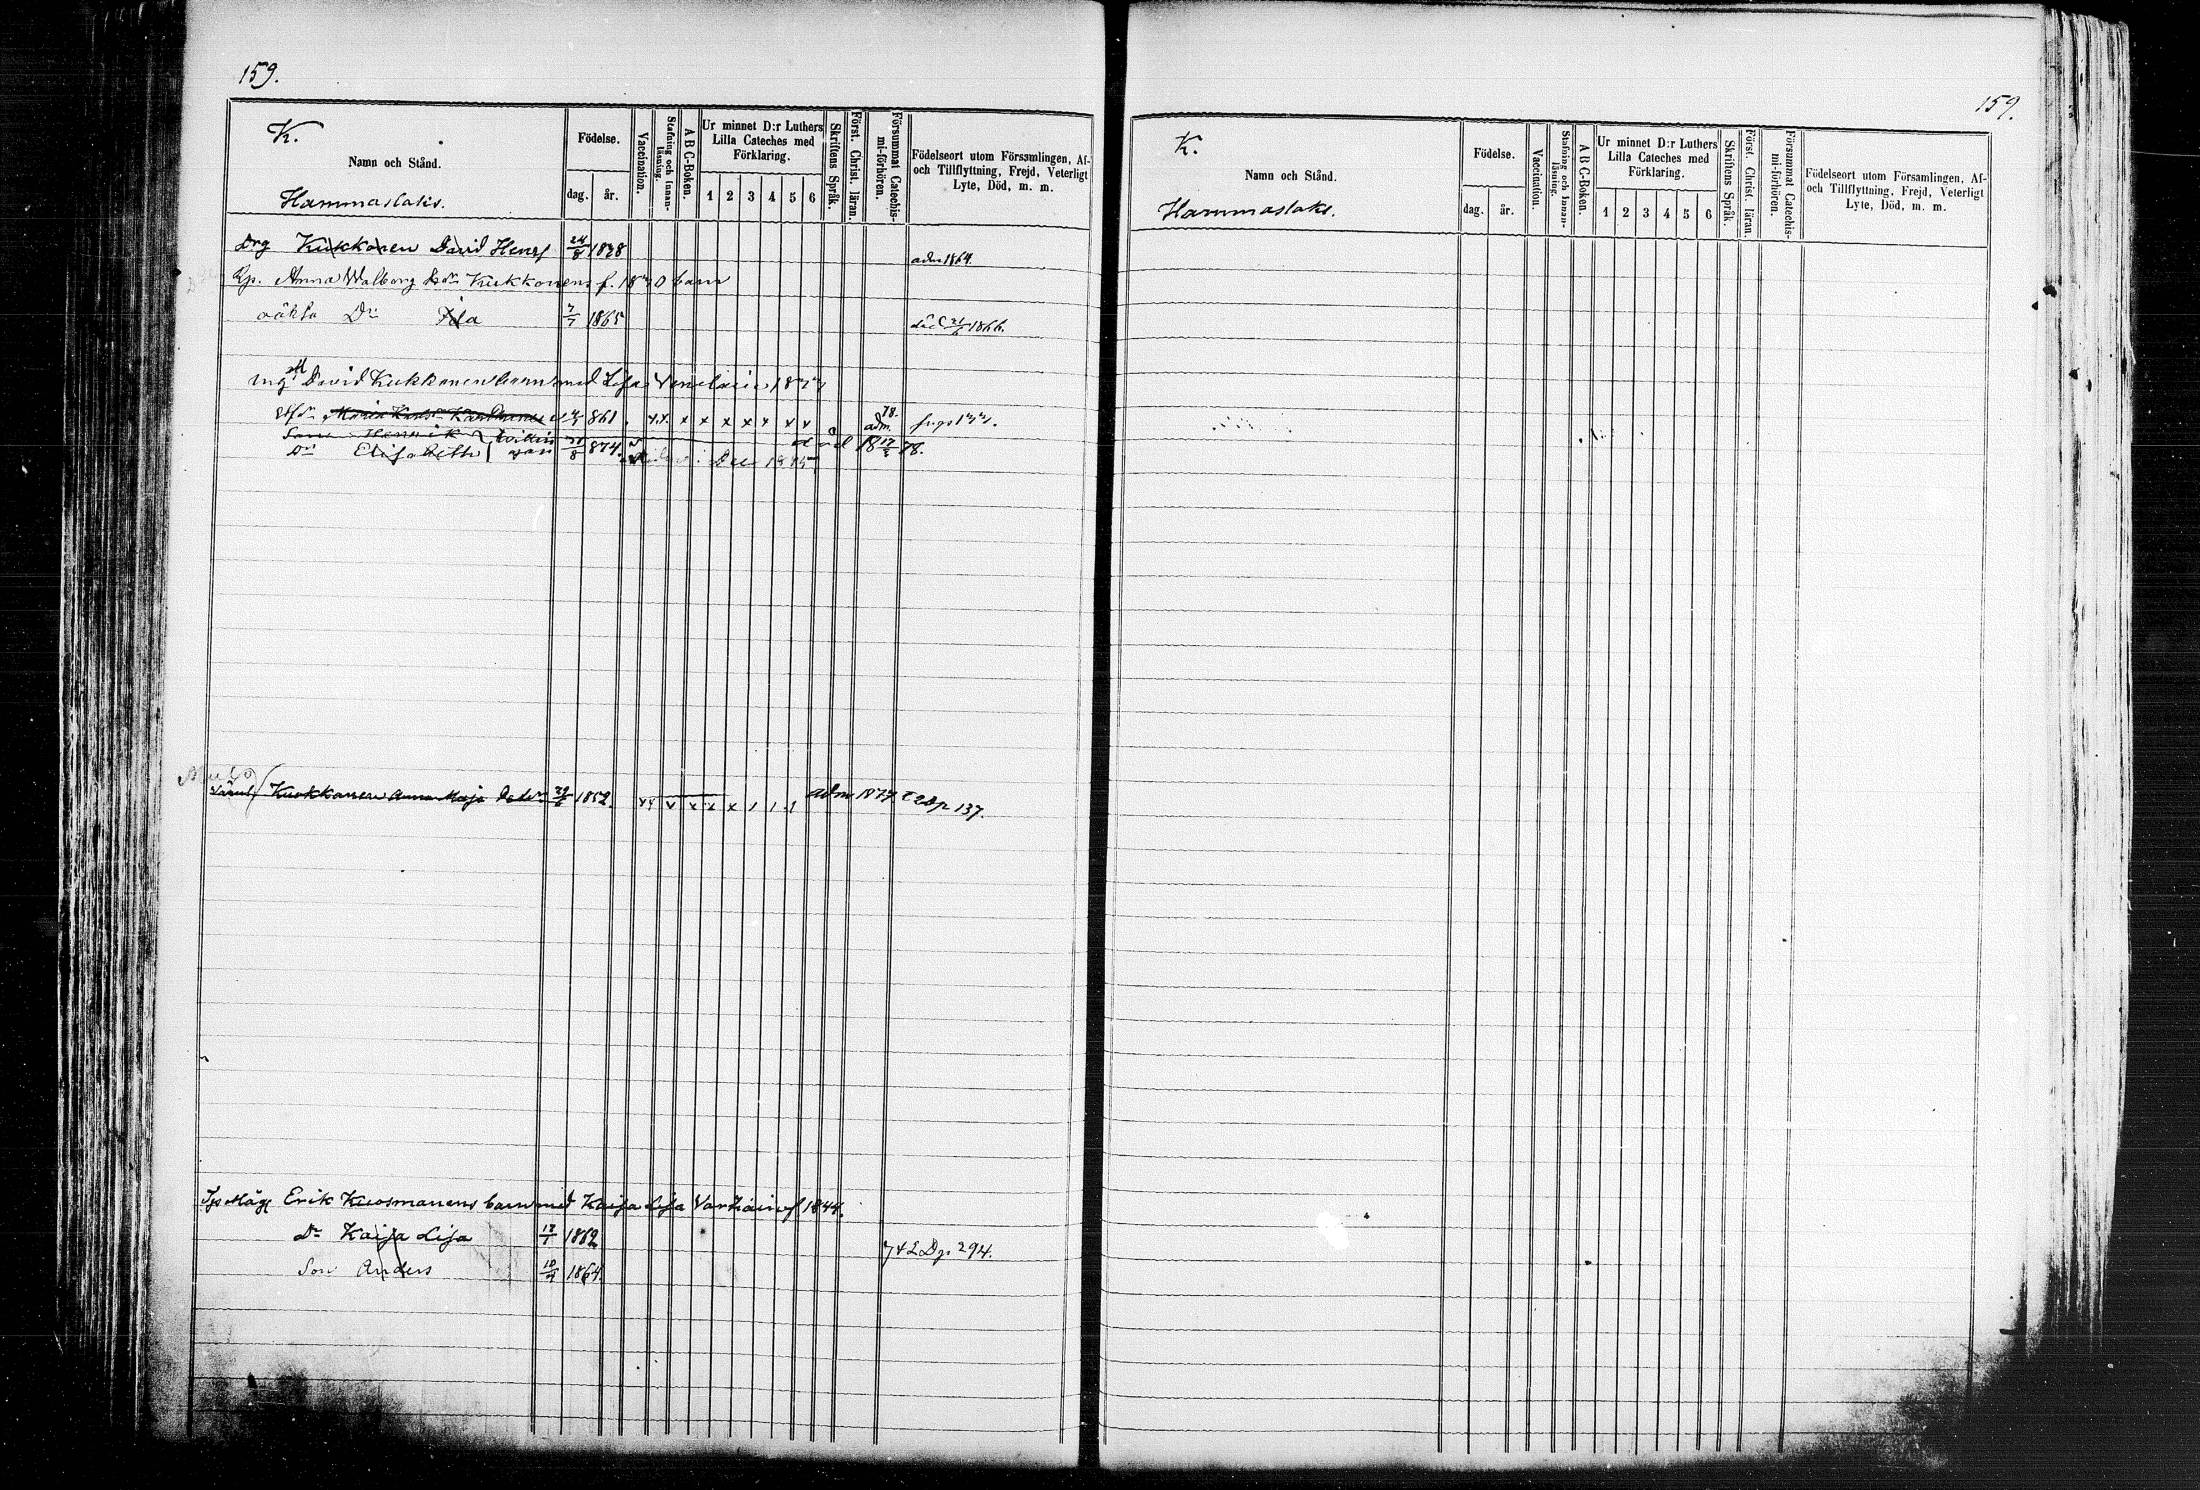 159.
K.
Namn och Stånd.
Hammaslaks.
Födelse.
dag. år.
Vaccination.
Stafning och Innanläsning.
A B C-Boken.
Ur minnet D:r Luthers Lilla Cateches med Förklaring.
1 2 3 4 5 6
Skriftens Språk.
Först. Christ. läran.
Försummat Catechismi-förhören.
Födelseort utom Församlingen, Af- och Tillflyttning, Frejd, Veterligt Lyte, Död, m. m.
Drg Kukkonen David Henr 24/8 1828 adm 1864.
Anna Walborg Kukkonens f. 1830 barn
oäkta Dr Ida 7/7 1865 död 21/6 1866.
David Kukkonens barn med Lisa
861 x x x x x x x x adm. 78.
Son Henrik
Dr Elisabeth 31/8 874. död 18 17/3 78.
Kuokkanen Anna Maja 29/6 1852. x x x x x x adm 1877 p 137.
Erik Kuosmanens barn med Kaisa Lisa Vartiain f 1844.
Dr Kaisa Lisa 17/1 1862 294.
Son Anders 10/4 1864.
159.
K.
Namn och Stånd.
Hammaslaks.
Födelse.
dag. år.
Vaccination.
Stafning och Innanläsning.
A B C-Boken.
Ur minnet D:r Luthers Lilla Cateches med Förklaring.
1 2 3 4 5 6
Skriftens Språk.
Först. Christ. läran.
Försummat Catechismi-förhören.
Födelseort utom Församlingen, Af- och Tillflyttning, Frejd, Veterligt Lyte, Död, m. m.